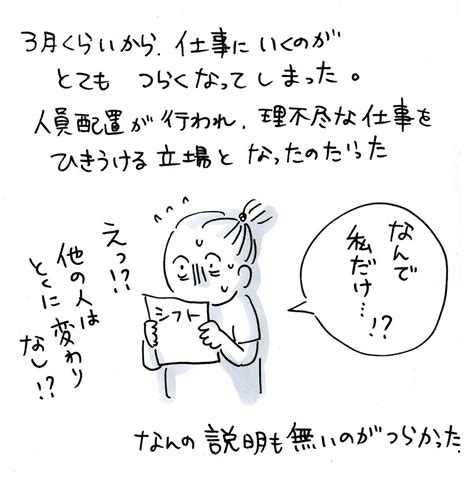 3月くらいから、仕事にいくのが
とても つらくなってしまった。
人員配置が行われ、理不尽な仕事を
ひきうける立場となったのだった
なんで
私だけ…!?
えっ!?
他の人は
とくに変わり
なし!?
シフト
なんの説明も無いのがつらかった